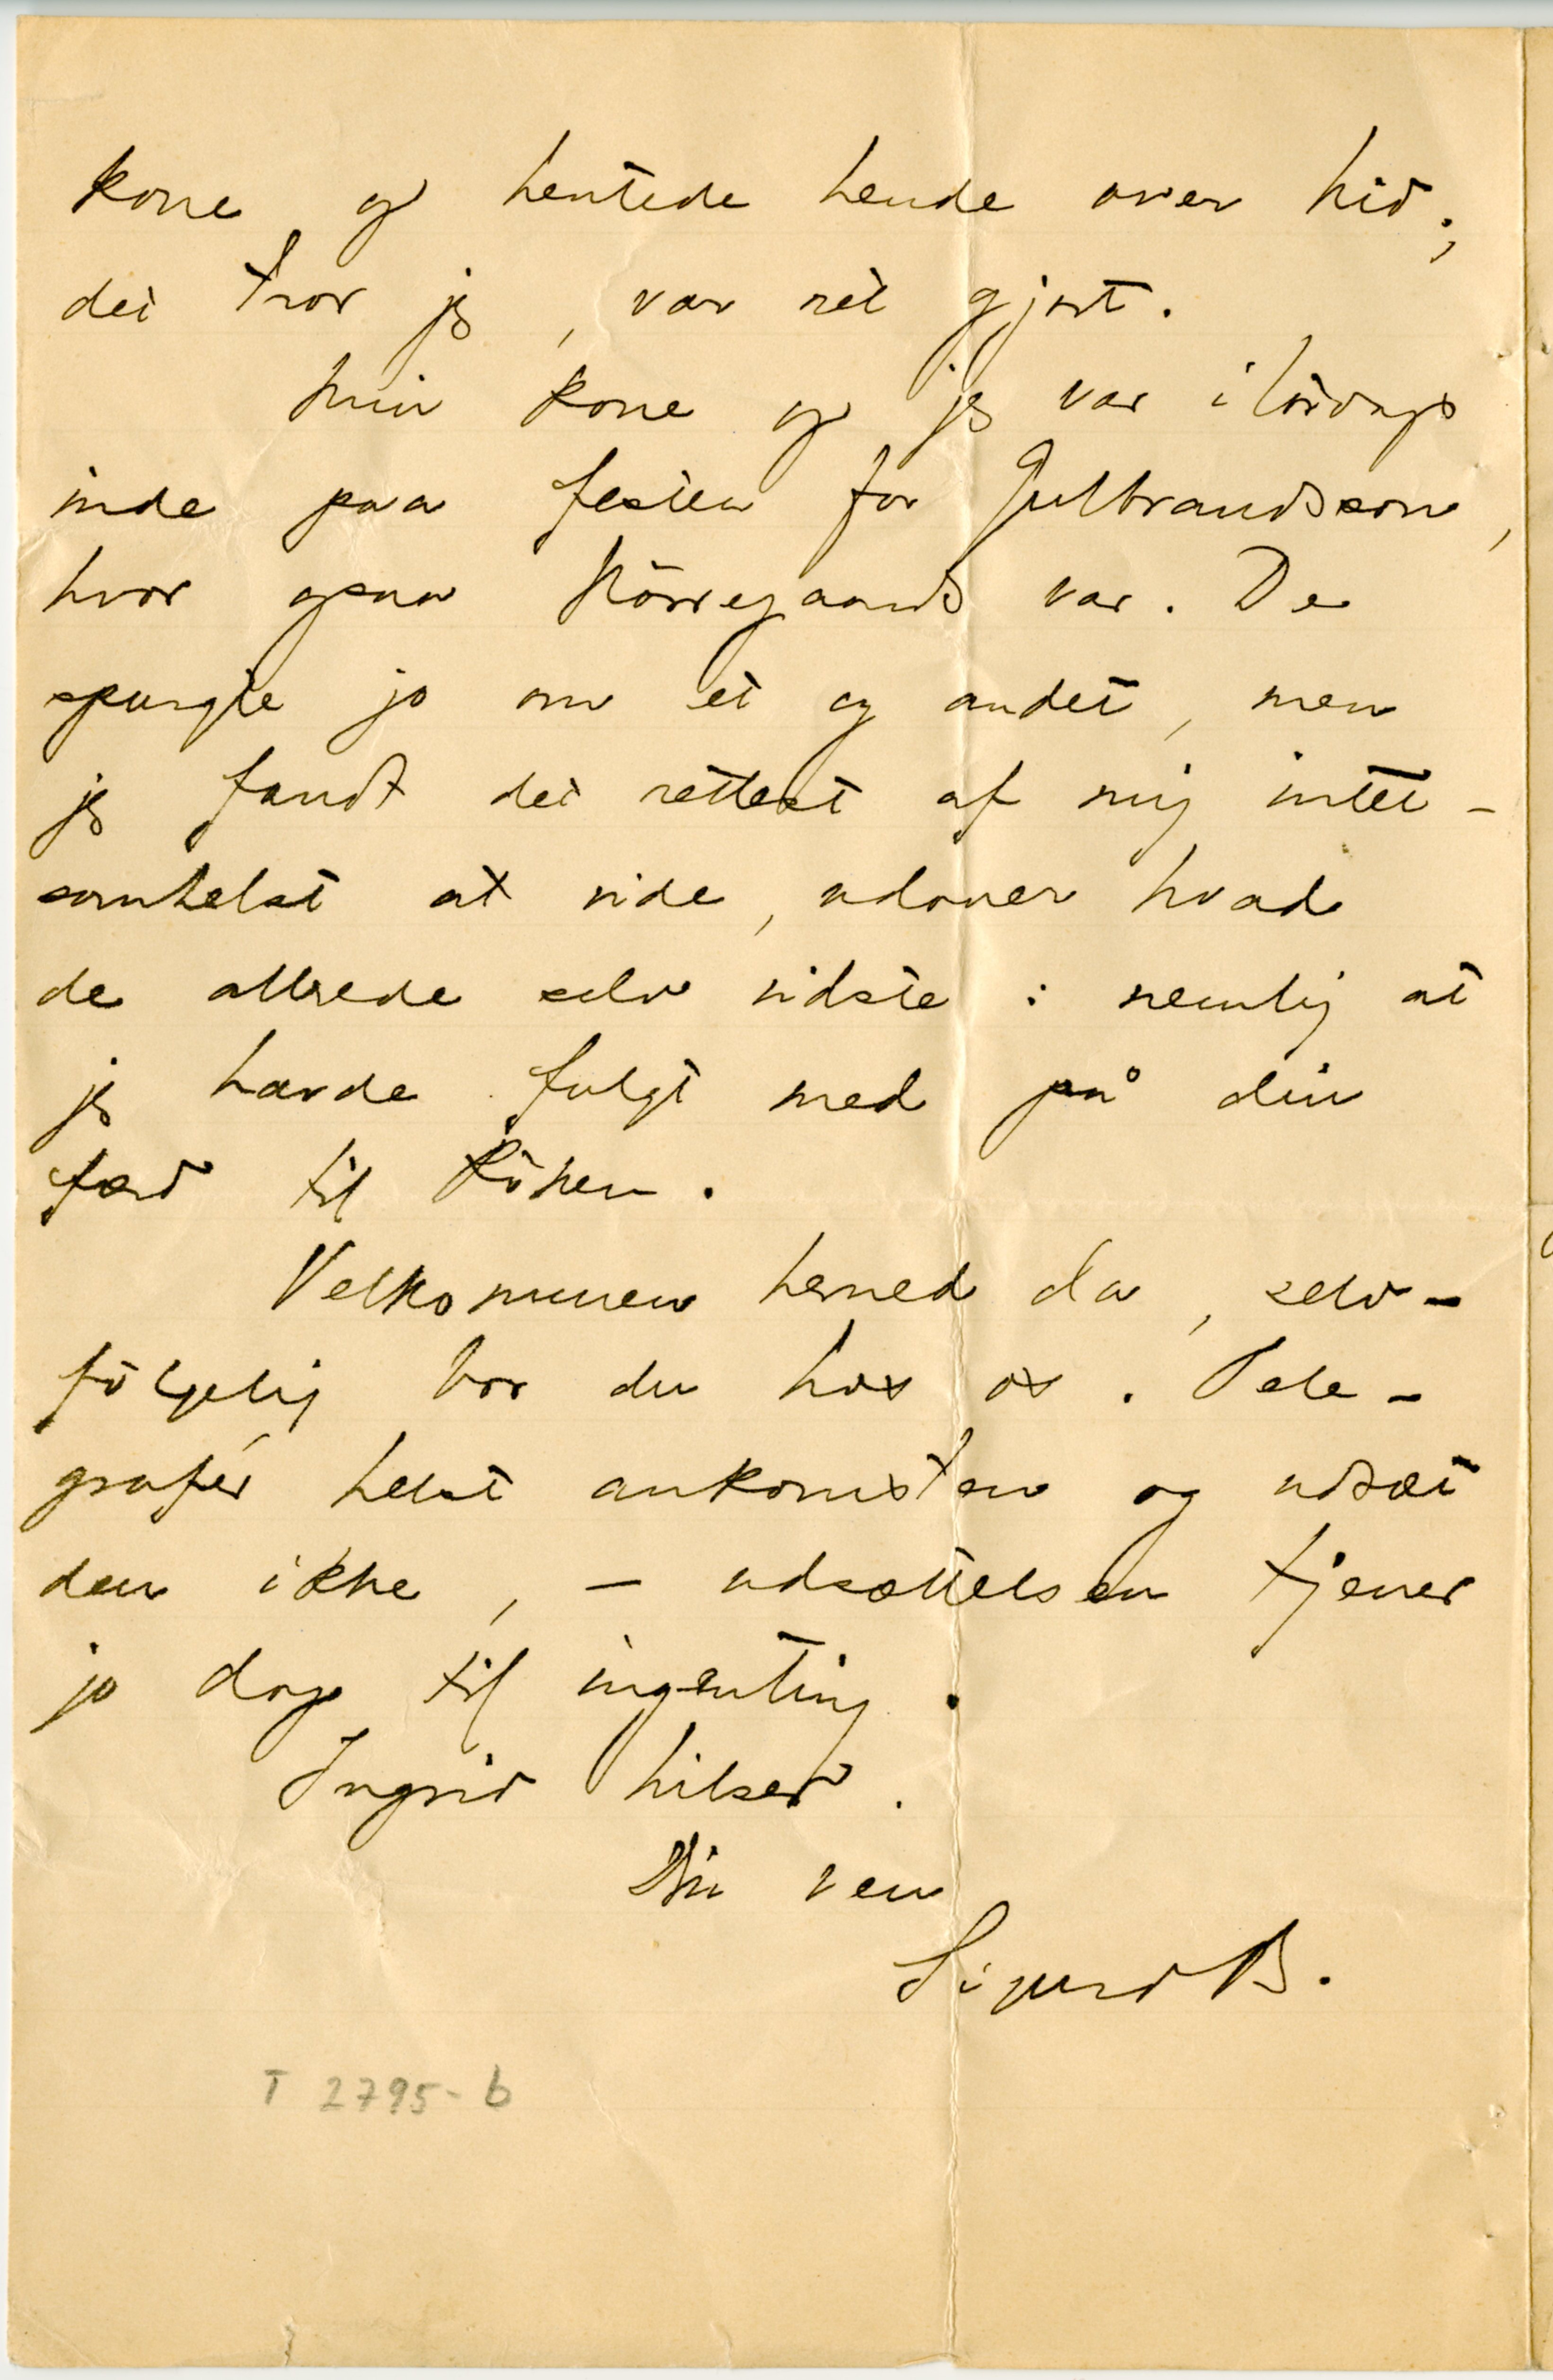 kone og hentede hende over hid;
det tror jeg, var ret gjort.
Min kone og jeg var i lördags
inde paa festen for Gulbrandsson,
hvor ogsaa Nörregaards var. De
spurgte jo om et og andet, men
jeg fandt det rettest af mig intet-
somhelst at vide, udover hvad
de allerede selv vidste: nemlig at
jeg havde fulgt med på din
færd til Röken.
Velkommen herned da, selv-
fölgelig bor du hos os. Tele-
grafér helst ankomsten og udsæt
den ikke, – udsættelsen tjener
jo dog til ingenting.
Ingrid hilser.
Din ven
Sigurd B.
T 2795-b